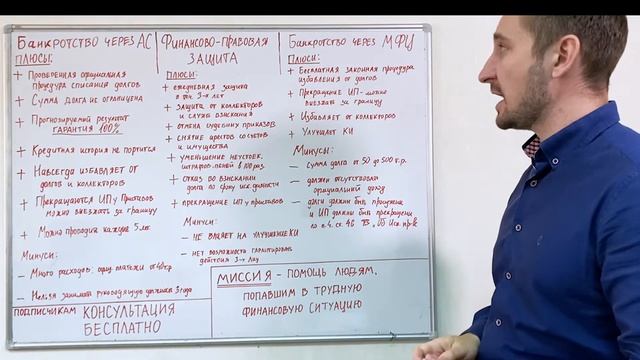 БАНКРОТСТВО ЧЕРЕЗ АС
ПЛЮСЫ:
+ ПРОВЕРЕННАЯ ОФИЦИАЛЬНАЯ
ПРОЦЕДУРА СПИСАНИЯ ДОЛГОВ
+ СУММА ДОЛГА НЕ ОГРАНИЧЕНА
+ ПРОГНОЗИРУЕМЫЙ РЕЗУЛЬТАТ
ГАРАНТИЯ 100%
+ КРЕДИТНАЯ ИСТОРИЯ НЕ ПОРТИТСЯ
+ НАВСЕГДА ИЗБАВЛЯЕТ ОТ
ДОЛГОВ И КОЛЛЕКТОРОВ
+ ПРЕКРАЩАЮТСЯ ИП У ПРИСТАВОВ
МОЖНО ВЫЕЗЖАТЬ ЗА ГРАНИЦУ
+ МОЖНО ПРОВОДИТЬ КАЖДЫЕ 5 ЛЕТ
МИНУСЫ:
– МНОГО РАСХОДОВ:
– НЕЛЬЗЯ ЗАНИМАТЬ РУКОВОДЯЩУЮ ДОЛЖНОСТЬ 3 ГОДА
ФИНАНСОВО-ПРАВОВАЯ
ЗАЩИТА
ПЛЮСЫ:
+ ЕЖЕДНЕВНАЯ ЗАЩИТА
В ТЕЧ. 3-х ЛЕТ
+ ЗАЩИТА ОТ КОЛЛЕКТОРОВ
И СЛУЖБ ВЗЫСКАНИЯ
+ ОТМЕНА СУДЕБНЫХ ПРИКАЗОВ
+ СНЯТИЕ АРЕСТОВ СО СЧЕТОВ
И ИМУЩЕСТВА
+ УМЕНЬШЕНИЕ НЕУСТОЕК,
ШТРАФОВ-ПЕНЕЙ В 100 РАЗ
+ ОТКАЗ ВО ВЗЫСКАНИИ
ДОЛГА ПО СРОКУ ИСК. ДАВНОСТИ
+ ПРЕКРАЩЕНИЕ ИП У ПРИСТАВОВ
МИНУСЫ:
– НЕ ВЛИЯЕТ НА УЛУЧШЕНИЕ КИ
– НЕТ ВОЗМОЖНОСТИ ГАРАНТИРОВАТЬ
ДЕЙСТВИЯ 3-х ЛИЦ
БАНКРОТСТВО ЧЕРЕЗ МФЦ
ПЛЮСЫ:
+ БЕСПЛАТНАЯ ЗАКОННАЯ ПРОЦЕДУРА
ИЗБАВЛЕНИЯ ОТ ДОЛГОВ
+ ПРЕКРАЩЕНИЕ ИП - МОЖНО
ВЫЕЗЖАТЬ ЗА ГРАНИЦУ
+ ИЗБАВЛЯЕТ ОТ КОЛЛЕКТОРОВ
+ УЛУЧШАЕТ КИ
МИНУСЫ:
– СУММА ДОЛГА ОТ 50 ДО 500 т.р.
– ДОЛЖЕН ОТСУТСТВОВАТЬ
ОФИЦИАЛЬНЫЙ ДОХОД
– ДОЛГИ ДОЛЖНЫ БЫТЬ ПРОСУЖЕНЫ
И ИП ДОЛЖНЫ БЫТЬ ПРЕКРАЩЕНЫ
ПО п.4 ст. 46 ФЗ
ПОДПИСЧИКАМ КОНСУЛЬТАЦИЯ
БЕСПЛАТНО
МИССИЯ - ПОМОЩЬ ЛЮДЯМ,
ПОПАВШИМ В ТРУДНУЮ
ФИНАНСОВУЮ СИТУАЦИЮ